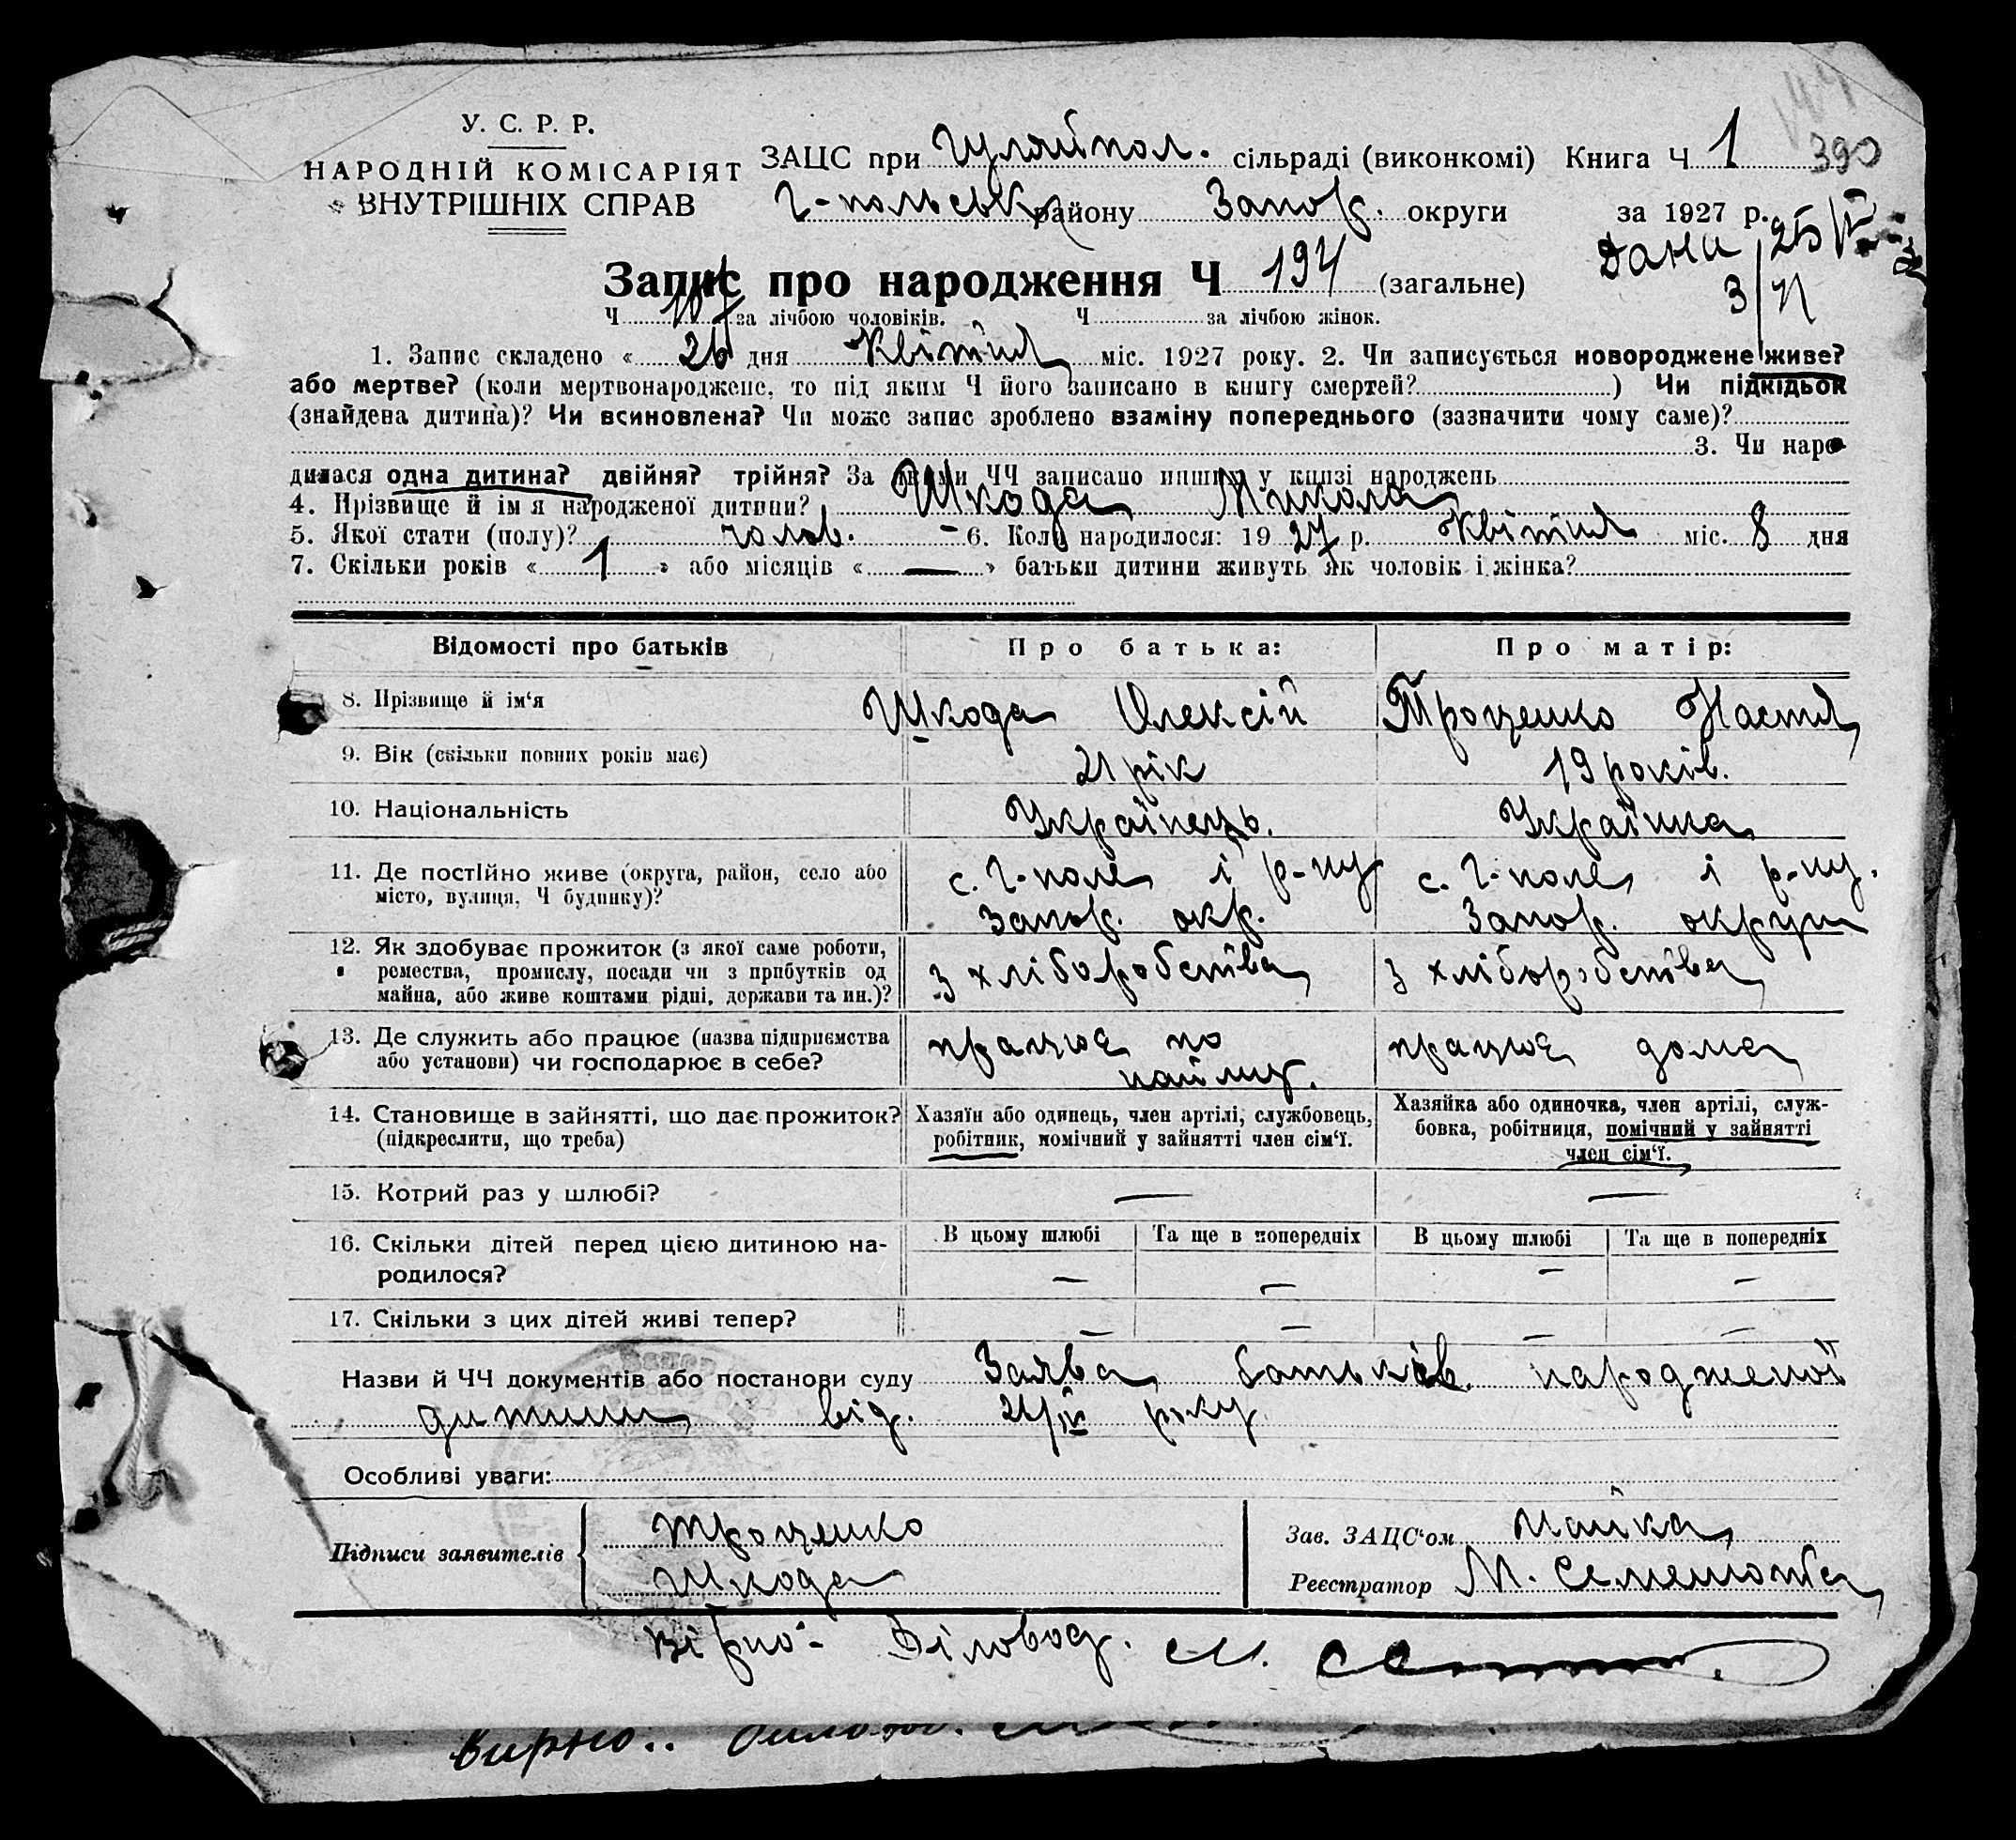 У. С. Р. Р.
НАРОДНІЙ КОМІСАРІЯТ
ВНУТРІШНІХ СПРАВ
ЗАЦС при Гуляйпол. сільраді (виконкомі) Книга Ч 1
390
Г-польськ району Запор. округи за 1927 р.
Запис про народження Ч 194 (загальне)
Ч 107 за лічбою чоловіків. Ч за лічбою жінок.
1. Запис складено « 26 дня Квітня міс. 1927 року. 2. Чи записується новороджене живе?
або мертве? (коли мертвонароджене, то під яким Ч його записано в книгу смертей? ) Чи підкідьок
(знайдена дитина)? Чи всиновлена? Чи може запис зроблено взаміну попереднього (зазначити чому саме)?
3. Чи наро-
дилася одна дитина? двійня? трійня? За якими ЧЧ записано інших у книзі народжень
4. Прізвище й ім'я народженої дитини? Шкода Микола
5. Якої стати (полу)? чолов. - 6. Коли народилося: 1927 р. Квітня міс. 8 дня
7. Скільки років « 1 » або місяців « — » батьки дитини живуть як чоловік і жінка?
Відомості про батьків Про батька: Про матір:
8. Прізвище й ім'я Шкода Олексій Троценко Настя
9. Вік (скільки повних років має) 21 рік 19 років.
10. Національність Українець. Українка
11. Де постійно живе (округа, район, село або місто, вулиця, Ч будинку)?
с. Г-поле і р-ну Запор. окр.
с. Г-поле і р-ну. Запор. округи
12. Як здобуває прожиток (з якої саме роботи,
ремества, промислу, посади чи з прибутків од
майна, або живе коштами рідні, держави та ин.)?
з хліборобства з хліборобства
13. Де служить або працює (назва підприємства
або установи) чи господарює в себе?
працює по найму. працює дома
14. Становище в зайнятті, що дає прожиток?
(підкреслити, що треба)
Хазяїн або одинець, член артілі, службовець,
робітник, помічний у зайнятті член сім'ї.
Хазяйка або одиночка, член артілі, служ-
бовка, робітниця, помічний у зайнятті
член сім'ї.
15. Котрий раз у шлюбі? — —
16. Скільки дітей перед цією дитиною на-
родилося?
В цьому шлюбі Та ще в попередніх В цьому шлюбі Та ще в попередніх
— — — —
17. Скільки з цих дітей живі тепер? — — — —
Назви й ЧЧ документів або постанови суду Заява батьків народженої
дитини від. 21/IV року
Особливі уваги:
Підписи заявителів Троценко
Шкода
Зав. ЗАЦС'ом
Реєстратор М.
вірно:- Діловод. М.
вирно..